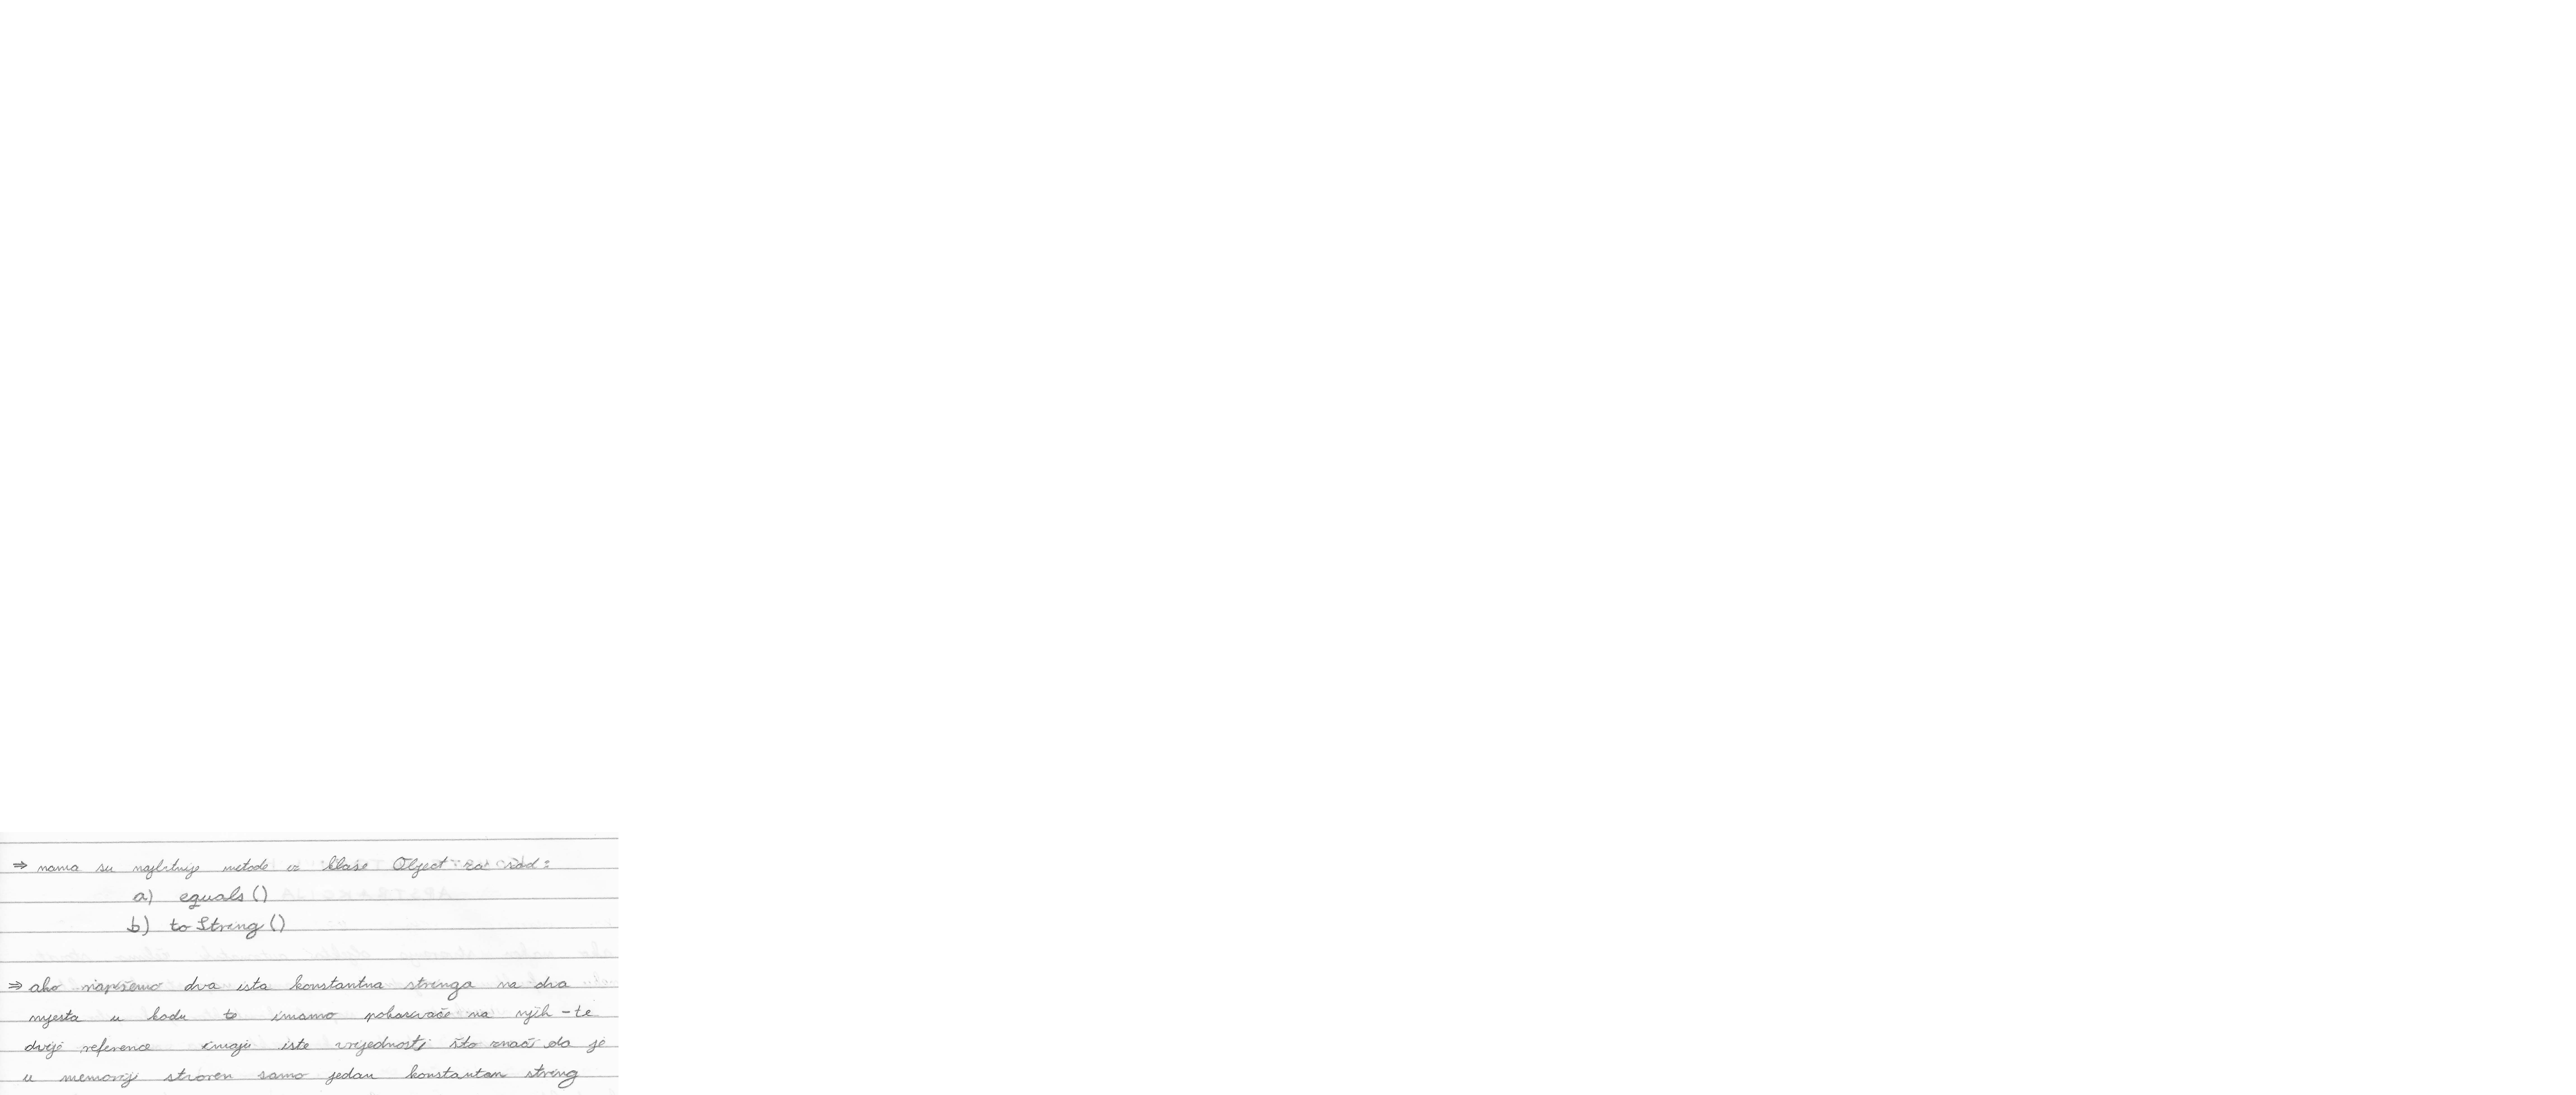 ⇒ nama su najbitnije metode iz klase Object za sad:
a) equals()
b) toString()
⇒ ako napišemo dva ista konstantna stringa na dva
mjesta u kodu te imamo pokazivače na njih - te
dvije reference imaju iste vrijednosti što znači da je
u memoriji stvoren samo jedan konstantan string